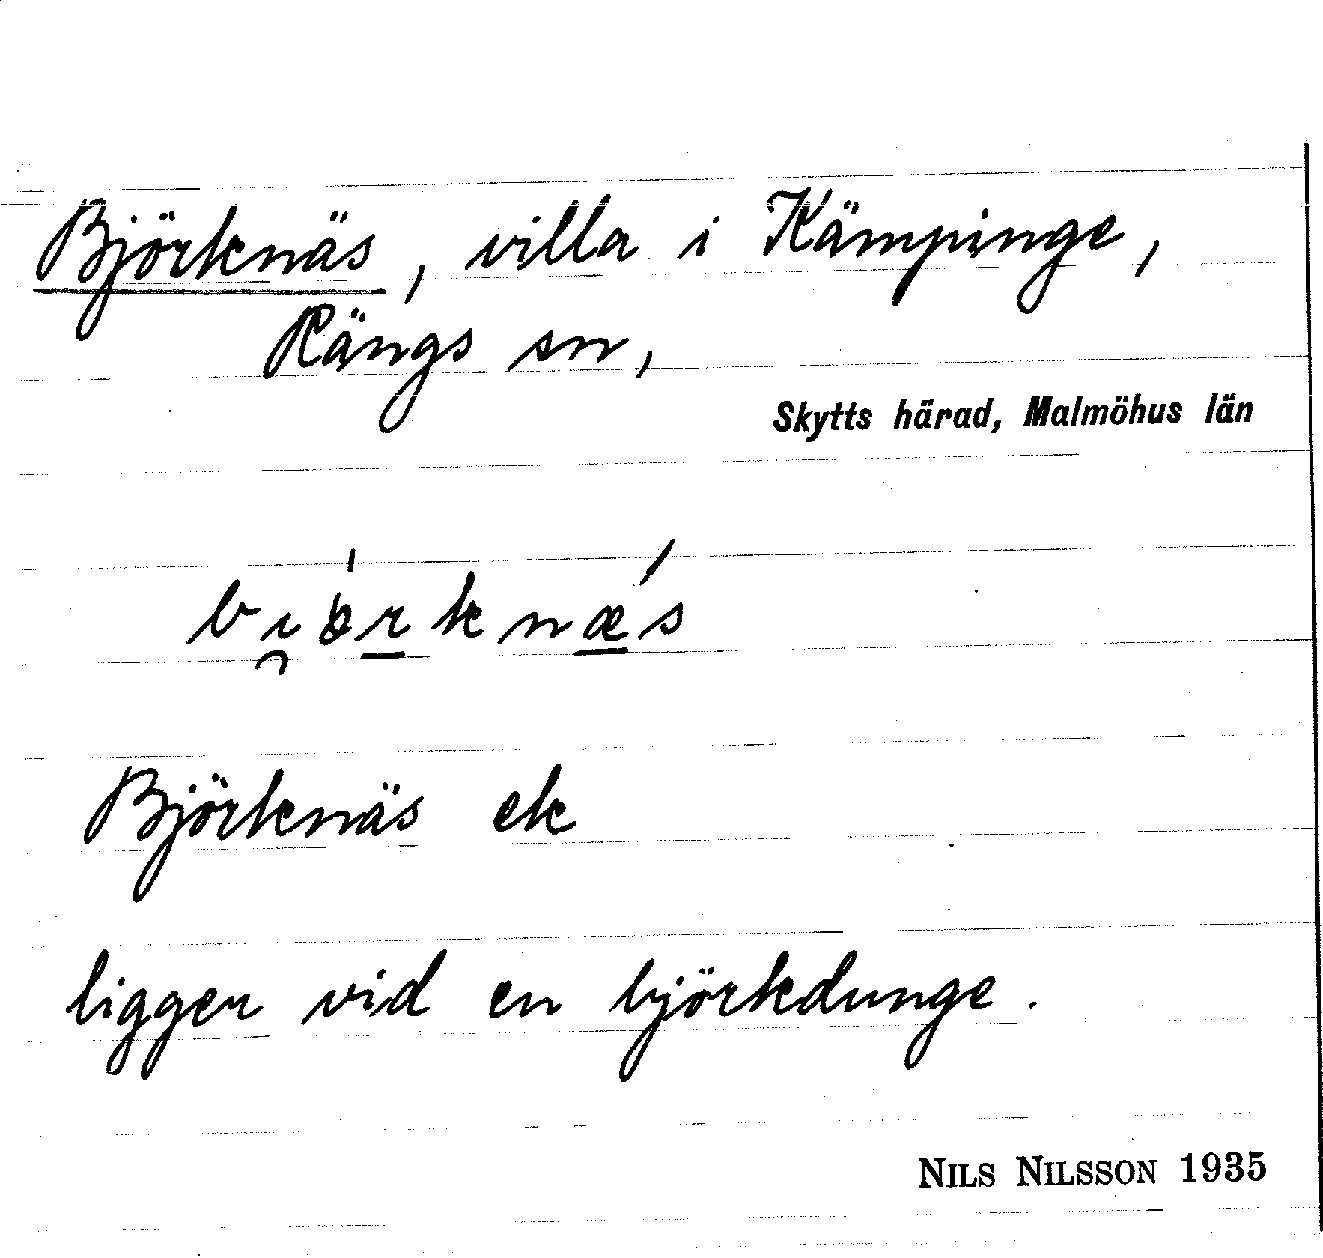 Björknäs, villa i Kämpinge,
Rängs sn,
Skytts härad, Malmöhus län
bi̯ö́rknǽs
Björknäs ek
ligger vid en björkdunge.
NILS NILSSON 1935